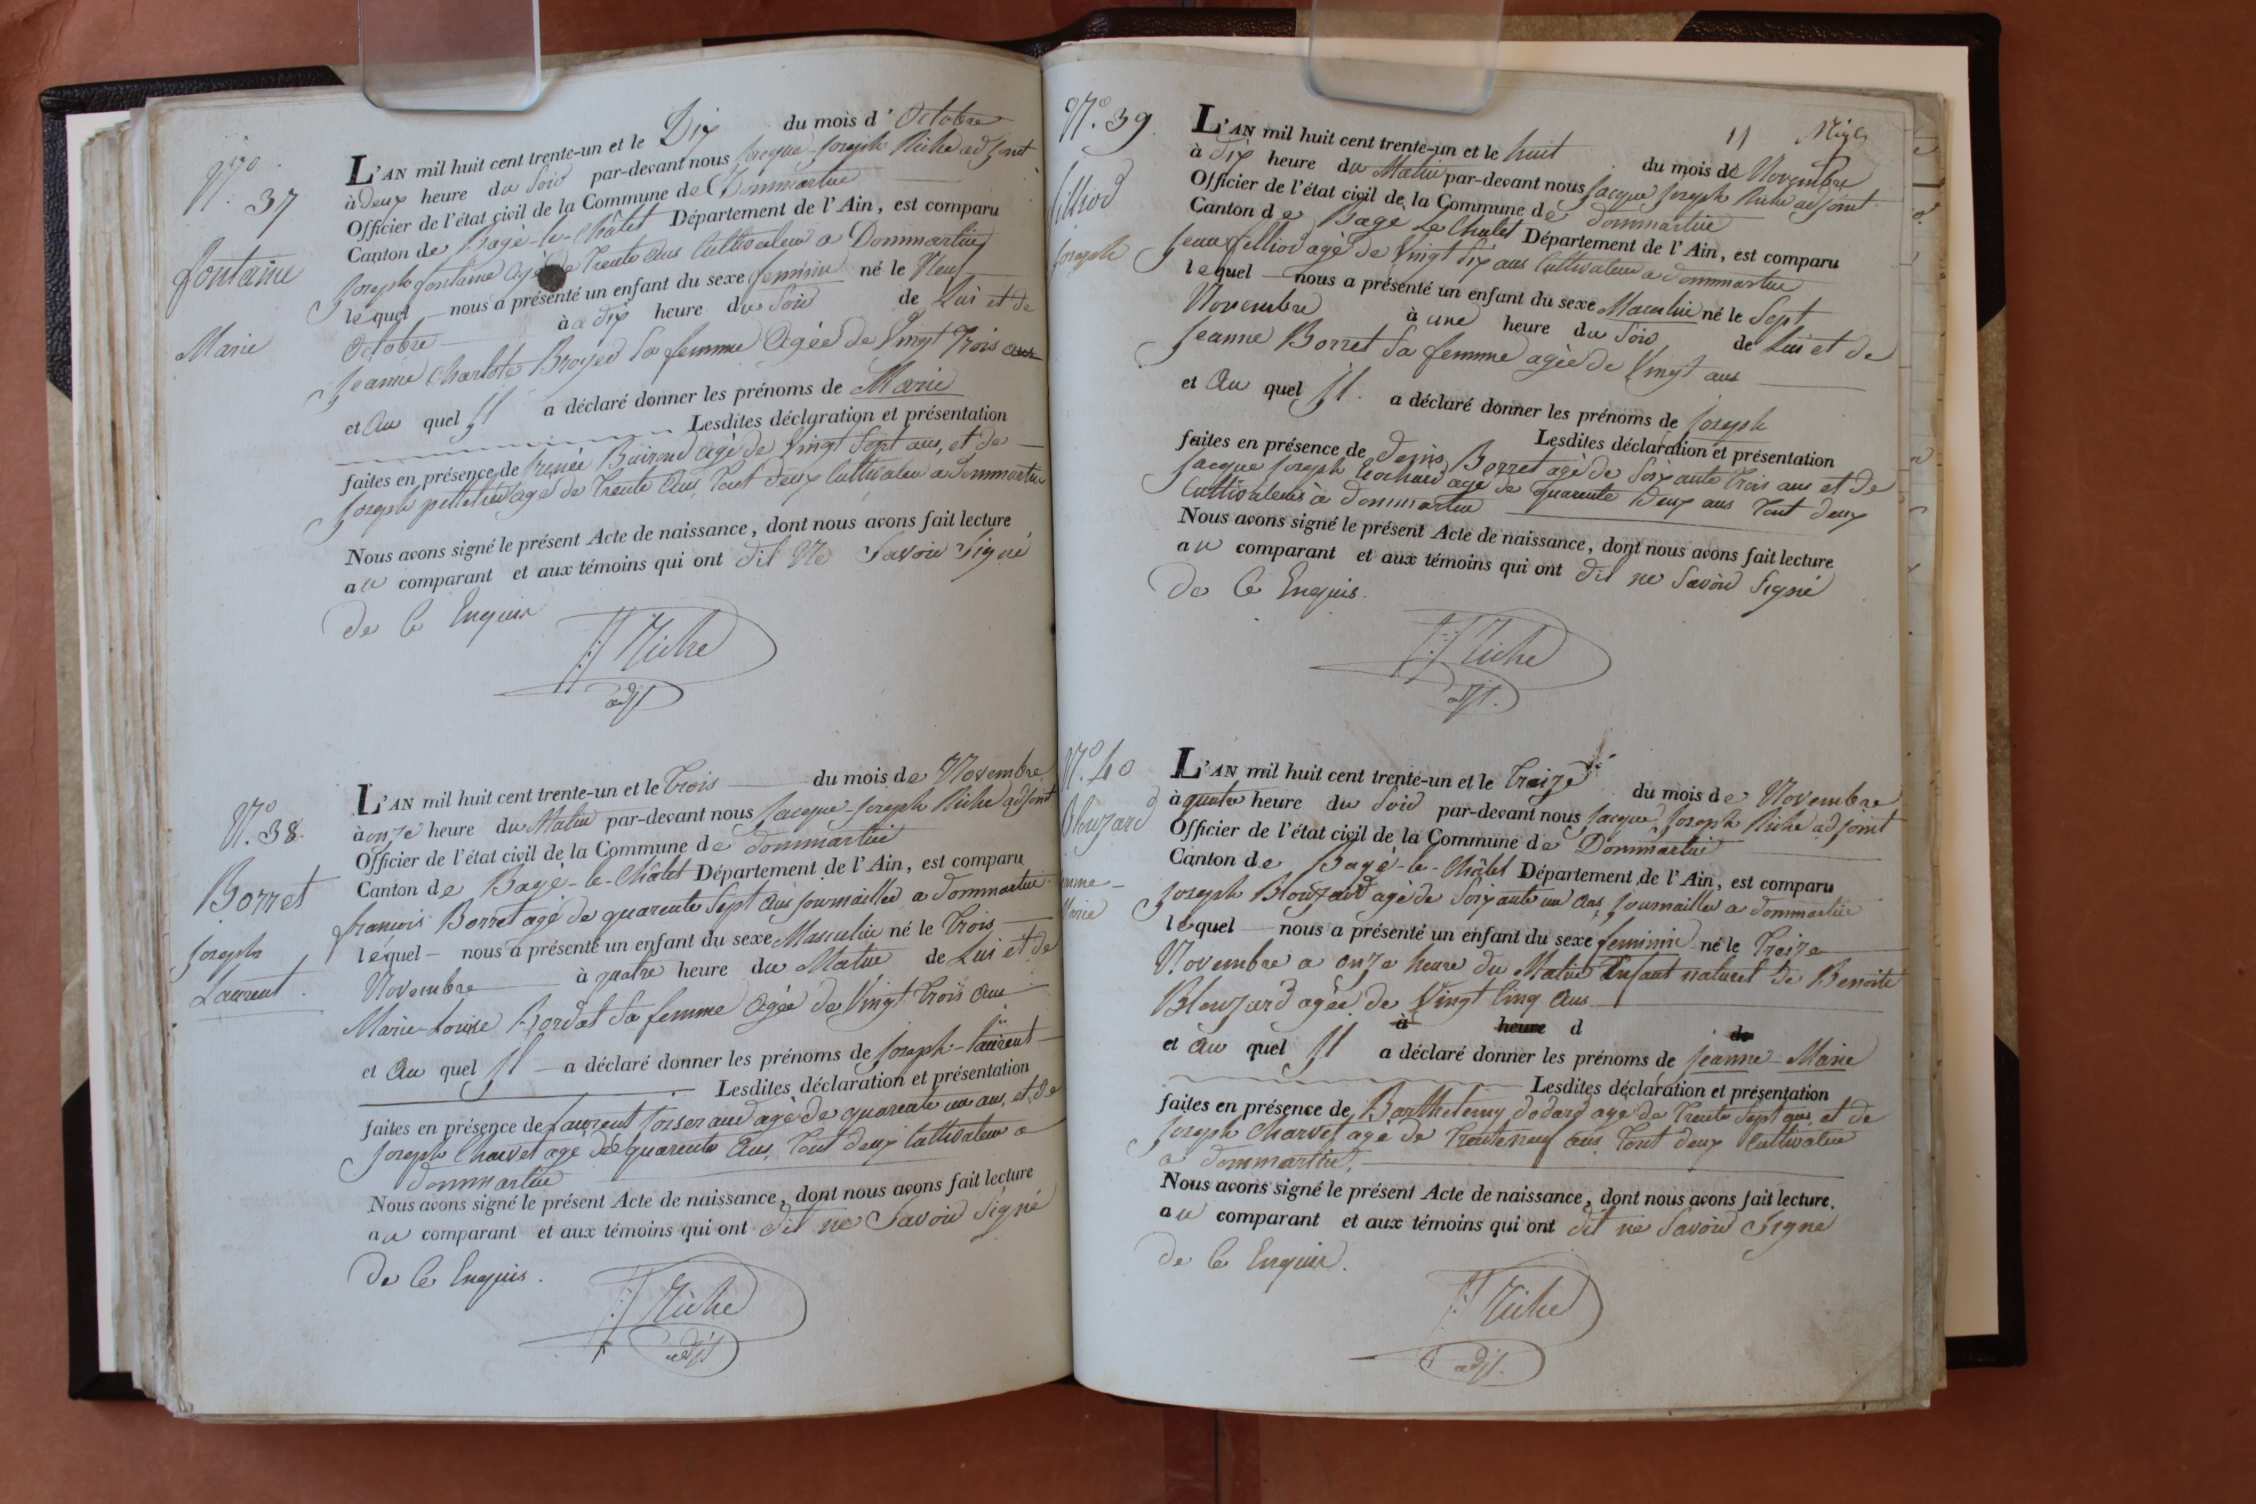 N.º 37
Fontaine
Marie
L'AN mil huit cent trente-un et le Dix du mois d' Octobre
à deux heure du Soir par-devant nous Jacque Joseph Riche adjoint
Officier de l'état civil de la Commune de Dommartin
Canton de Bagé-le-Châtel Département de l'Ain, est comparu
Joseph fontaine agé de Trente ans Cultivateur a Dommartin
lequel nous a présenté un enfant du sexe feminin né le Neuf
Octobre à a dix heure du Soir de Lui et de
Jeanne Charlote Broyer Sa femme Agée de Vingt Trois ans
et Au quel Il a déclaré donner les prénoms de Marie
Lesdites déclaration et présentation
faites en présence de Buiron agé de Vingt Sept ans, et de
Joseph pelletier agé de Trente Ans, Tout deux Cultivateur a Dommartin
Nous avons signé le présent Acte de naissance, dont nous avons fait lecture
au comparant et aux témoins qui ont dit Ne Savoir Signé
de Ce Enquis
JJ Riche
adjt
N.º 38.
Borret
Joseph
Laurent.
L'AN mil huit cent trente-un et le Trois du mois de Novembre
à onze heure du Matin par-devant nous Jacque Joseph Riche adjoint
Officier de l'état civil de la Commune de Dommartin
Canton de Bagé-le-Châtel Département de l'Ain, est comparu
françois Borret agé de quarente Sept Ans Journaillier a Dommartin
lequel nous a présenté un enfant du sexe Masculin né le Trois
Novembre à quatre heure du Matin de Lui et de
Marie-Louise Bordat Sa femme Agée de Vingt Trois Ans
et Au quel Il a déclaré donner les prénoms de Joseph-Laurent
Lesdites déclaration et présentation
faites en présence de Laurent agé de quarente un ans, et de
Joseph Charvet agé de quarente Ans, Tout deux Cultivateur a
Dommartin
Nous avons signé le présent Acte de naissance, dont nous avons fait lecture
au comparant et aux témoins qui ont dit ne Savoir Signé
de Ce Enquis.
JJ Riche
adjt
11
N.º 39.
filliod
Joseph
L'AN mil huit cent trente-un et le huit du mois de Novembre
à dix heure du Matin par-devant nous Jacque Joseph Riche adjoint
Officier de l'état civil de la Commune de Dommartin
Canton de Bagé Le Chatel Département de l'Ain, est comparu
Jean filliod agé de Vingt Six ans Cultivateur a Dommartin
lequel nous a présenté un enfant du sexe Masculin né le Sept
Novembre à une heure du Soir de Lui et de
Jeanne Borret Sa femme agée de Vingt ans
et Au quel Il a déclaré donner les prénoms de Joseph
Lesdites déclaration et présentation
faites en présence de Denis Borret agé de Soixante Trois ans et de
Jacque Joseph Cochard agé de quarente Deux ans Tout deux
Cultivateurs à Dommartin
Nous avons signé le présent Acte de naissance, dont nous avons fait lecture
au comparant et aux témoins qui ont dit ne Savoir Signé
de Ce Enquis.
JJ Riche
adjt.
N.º 40
Blouzard
Marie
L'AN mil huit cent trente-un et le Treize du mois de Novembre
à quatre heure du Soir par-devant nous Jacque Joseph Riche adjoint
Officier de l'état civil de la Commune de Dommartin
Canton de Bagé-le-Châtel Département de l'Ain, est comparu
Joseph Blouzard agé de Soixante un Ans, Journaillier a Dommartin
lequel nous a présenté un enfant du sexe feminin né le Treize
Novembre a onze heure du Matin Enfant naturel De Benoite
Blouzard agée de Vingt Cinq Ans
à heure d de
et Au quel Il a déclaré donner les prénoms de Jeanne-Marie
Lesdites déclaration et présentation
faites en présence de Barthelemy Dodard agé de Trente Sept ans, et de
Joseph Charvet agé de Trente neuf ans, Tout deux Cultivateur
a Dommartin,
Nous avons signé le présent Acte de naissance, dont nous avons fait lecture.
au comparant et aux témoins qui ont dit ne Savoir Signé
de Ce Enquis.
JJ Riche
adjt.